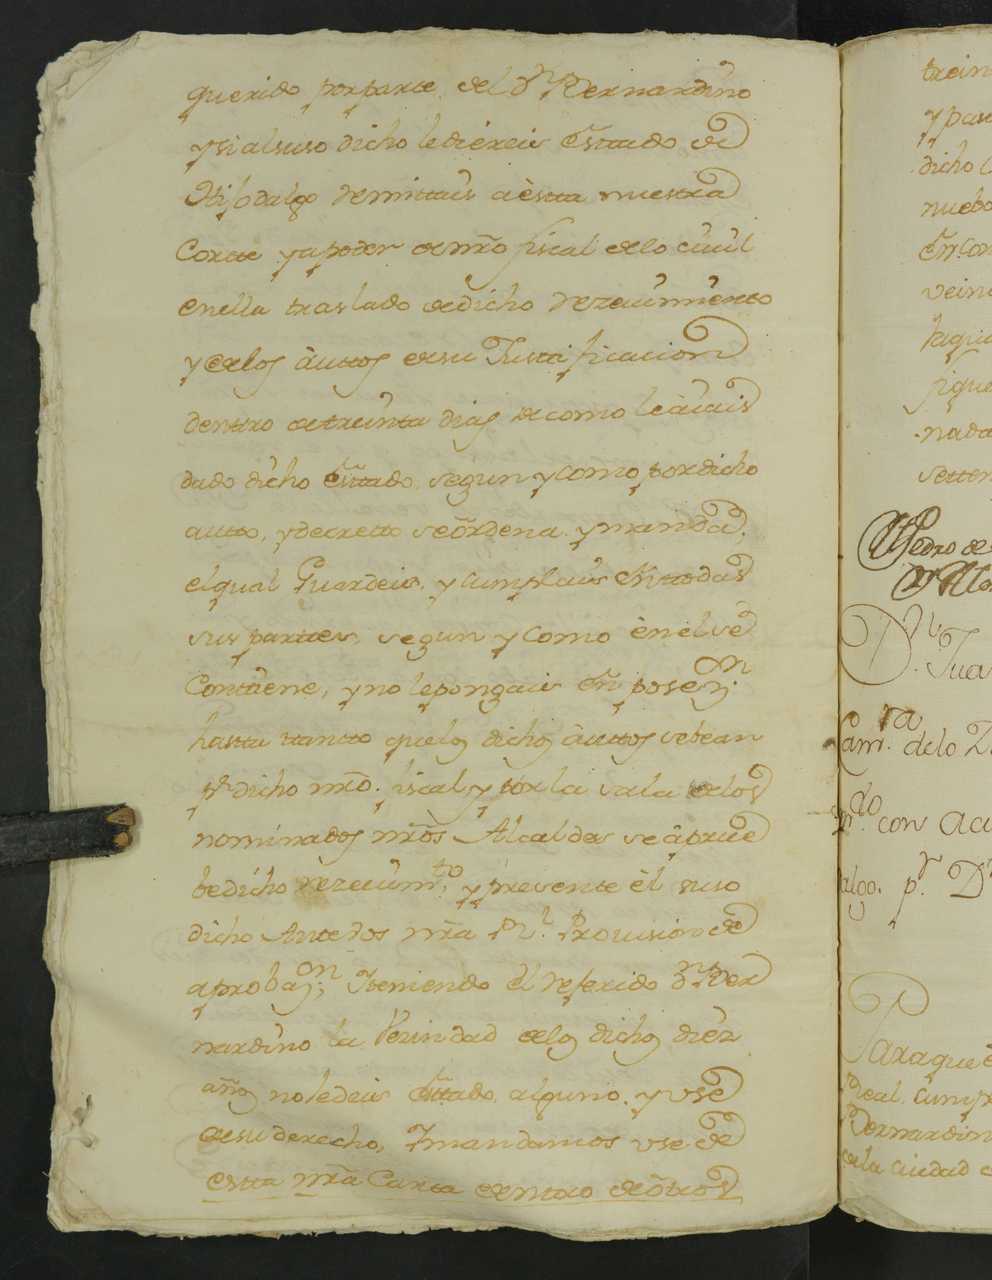 querido por parte del Dn Bernardino
y si al suso dicho le diereis estado de
Hijodalgo remittais a estta nuestra
Corte y a poder de nro fiscal de lo civil
en ella traslado de dicho rezevimiento
y de los auttos de su Justificacion
dentro de treinta dias de como le aiais
dado dicho esttado segun y como por dicho
autto, y decretto se ordena y manda,
el qual Guardeis y cumplais en ttodas
sus parttes, segun y como en el se
Conttiene, y no le pongais en posen.
hasta ttantto que los dichos auttos se bean
pr dicho nro. fiscal y por la sala de los
nominados nros Alcaldes se aprue
be dicho rezevimto. y presente el suso
dicho Antte nos nra Rl. Provision de
aprobaon; Y teniendo el referido Dn Ber
nardino la Vezindad de los dichos diez
años no le deis esttado alguno y use
de su derecho, Y mandamos use de
estta nra Cartta dentro de otros
trein
y pas
dicho
nueb
en Con
vein
sigue
nada
setten
Pedro de
Dn. Jua
Camra. de lo
con Acu
algo. pr. Dn
Para que
Real Cump
Bernardin
de la ciudad